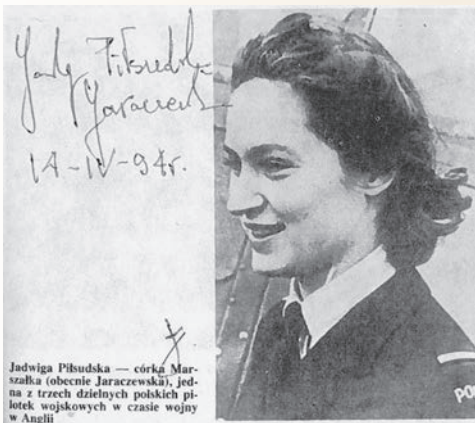 Jadwiga Piłsudska
Jaraczewska
14-IV-94r.
Jadwiga Piłsudska — córka Mar-
szałka (obecnie Jaraczewska), jed-
na z trzech dzielnych polskich pi-
lotek wojskowych w czasie wojny
w Anglii